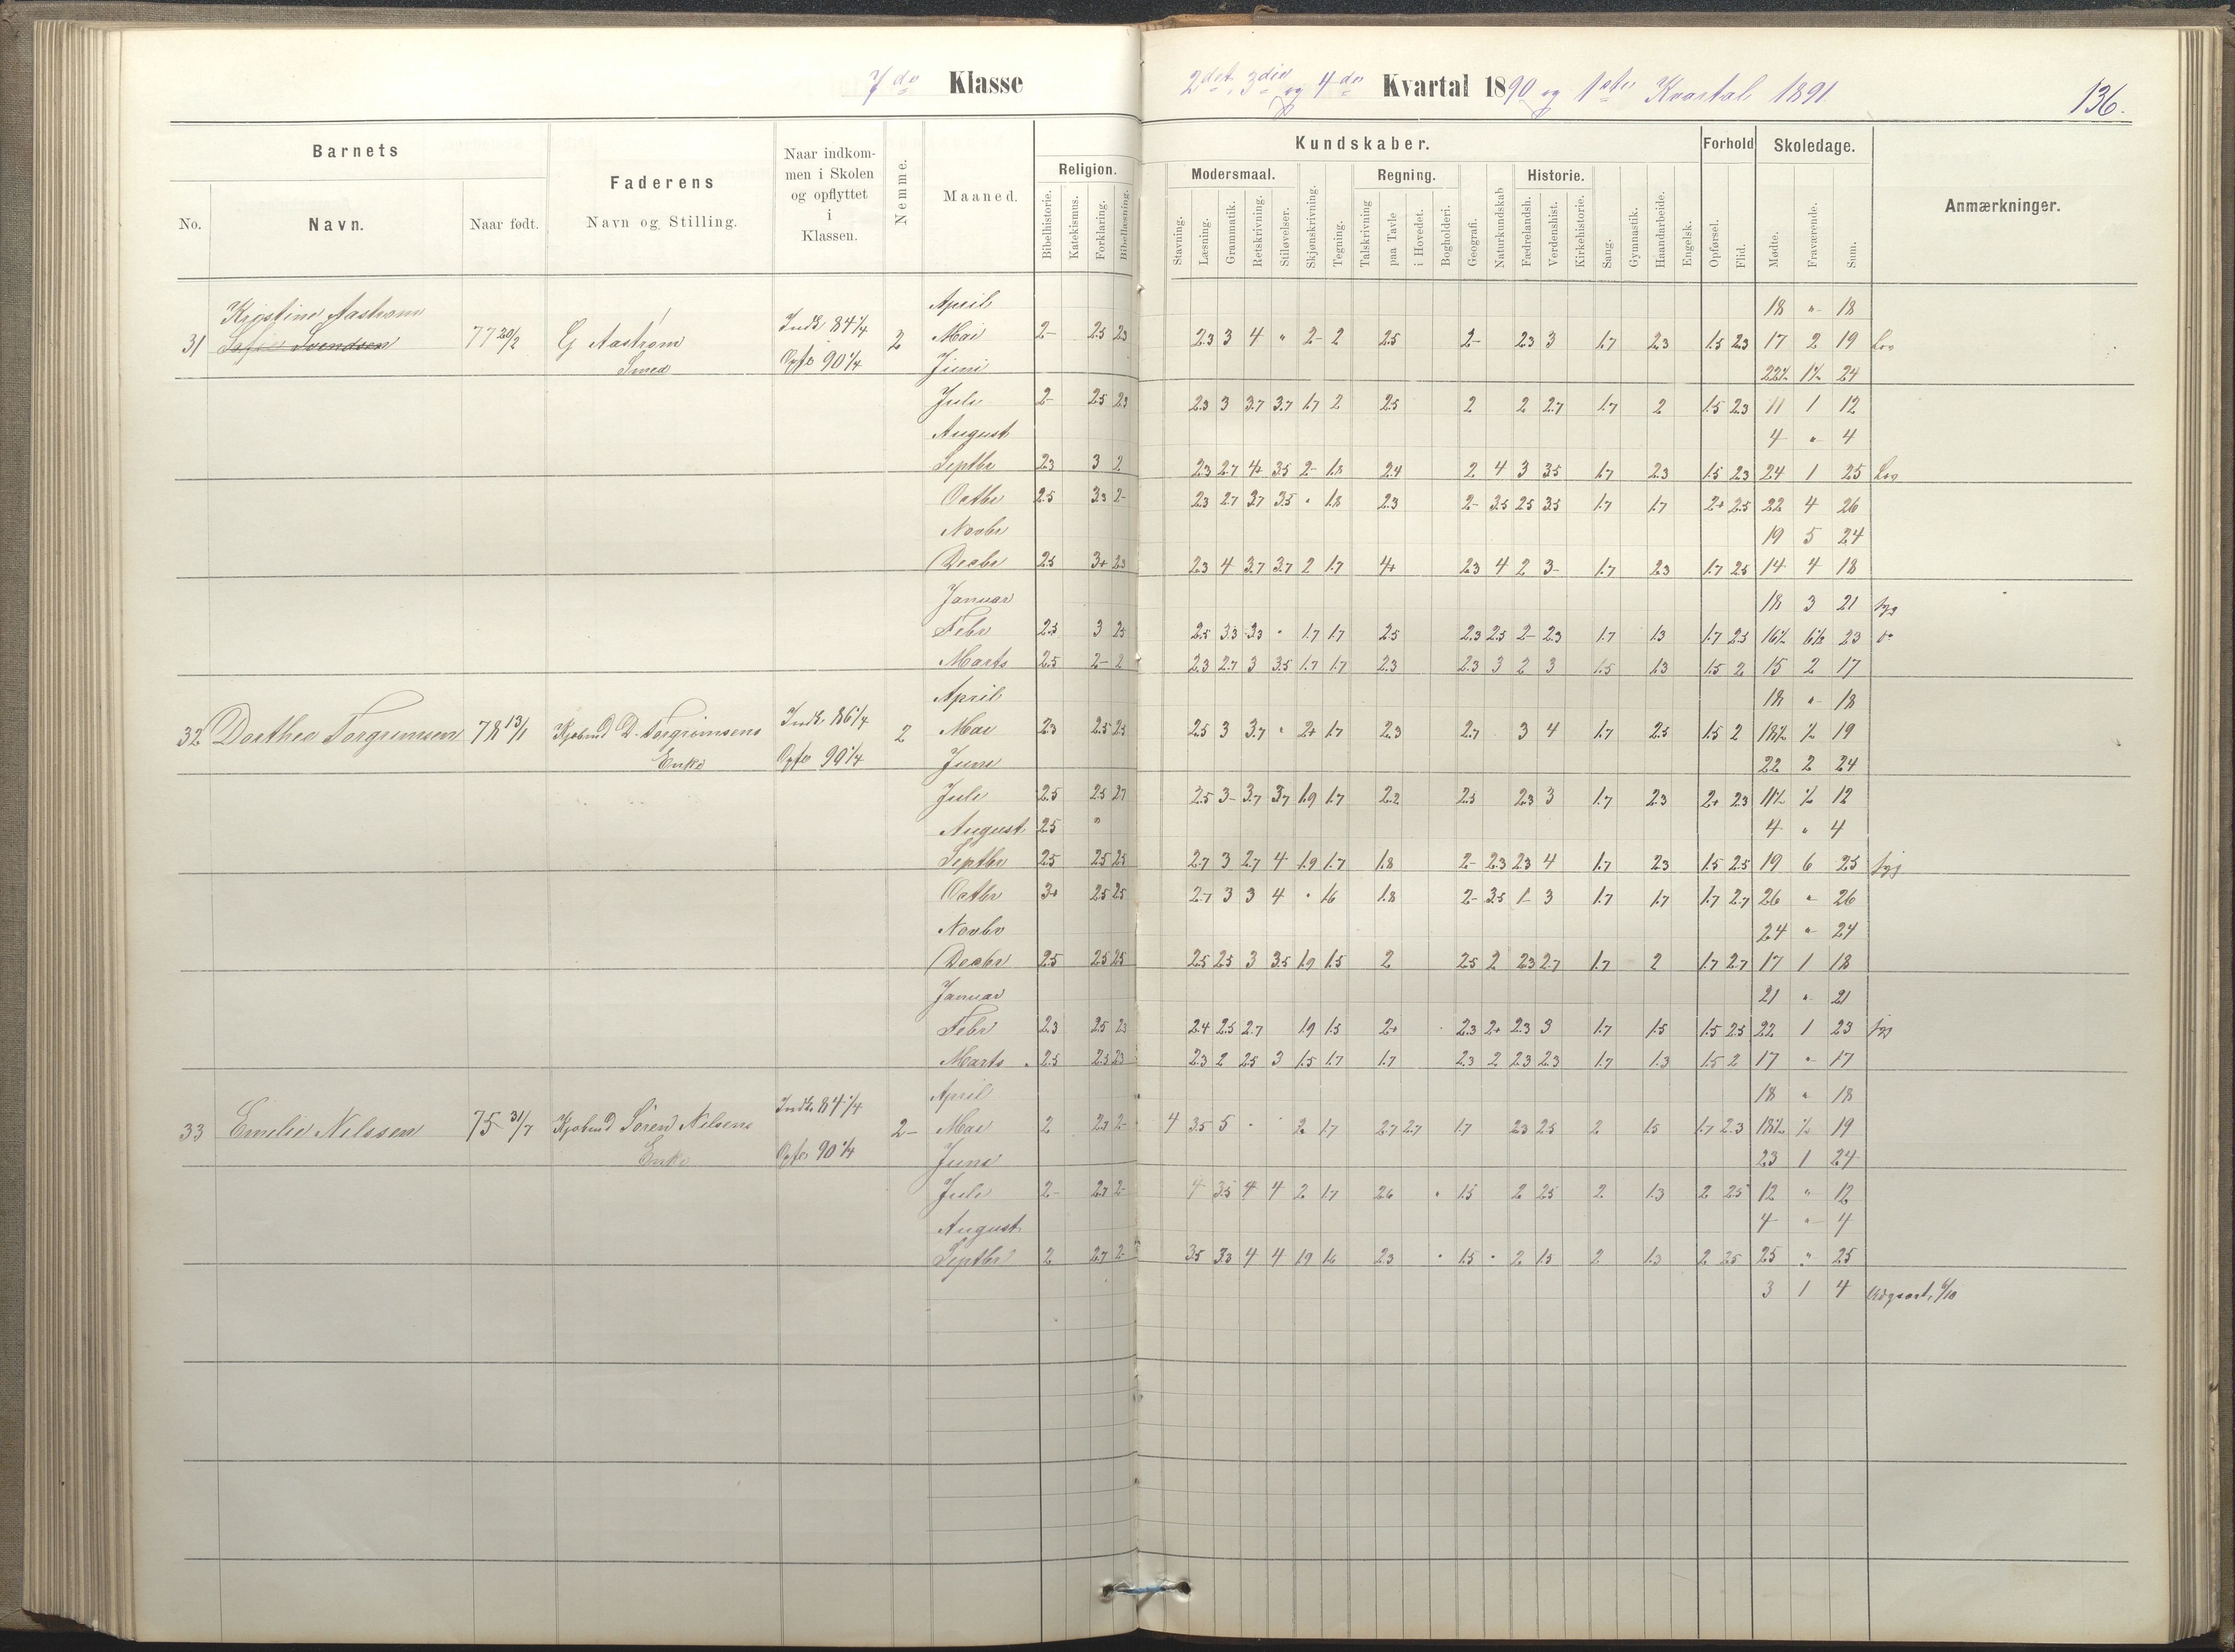 7de Klasse
2det, 3die og 4de Kvartal 1890 og 1ste Kvartal 1891.
136.
Barnets
No.
Navn.
Naar født.
Faderens
Navn og Stilling.
Naar indkom-
men i Skolen
og opflyttet
i
Klassen.
Nemme.
Maaned.
Religion.
Bibelhistorie.
Katekismus.
Forklaring.
Bibellæsning.
Kundskaber.
Modersmaal.
Stavning.
Læsning.
Grammatik.
Retskrivning.
Stiløvelser.
Skjønskrivning.
Tegning.
Regning.
Talskrivning
paa Tavle
i Hovedet.
Bogholderi.
Geografi.
Naturkundskab
Historie.
Fædrelandsh.
Verdenshist.
Kirkehistorie.
Sang.
Gymnastik.
Haandarbeide.
Engelsk.
Forhold
Opførsel.
Flid.
Skoledage.
Mødte.
Fraværende.
Sum.
Anmærkninger.
Kristine Aastrøm April 18 " 18
31 Sofie Svendsen 77 20/2 G Aastrøm Indk 84 1/4 2 Mai 2- 2.5 2.3 2.3 3 4 " 2- 2 2.5 2- 2.3 3 1.7 2.3 1.5 2.3 17 2 19 Lov
Smed Opfl 90 1/4 Juni 22½ 1½ 24
Juli 2- 2.5 2.3 2.3 3 3.7 3.7 1.7 2 2.5 2 2 2.7 1.7 2 1.5 2.3 11 1 12
August 4 " 4
Septbr 2.3 3 2 2.3 2.7 4+ 3.5 2- 1.8 2.4 2 4 3 3.5 1.7 2.3 1.5 2.3 24 1 25 Lov
Octbr 2.5 3.3 2- 2.3 2.7 3.7 3.5 " 1.8 2.3 2- 3.5 2.5 3.5 1.7 1.7 2+ 2.5 22 4 26
Novbr 19 5 24
Decbr 2.5 3+ 2.3 2.3 4 3.7 3.7 2 1.7 4+ 2.3 4 2 3- 1.7 2.3 1.7 2.5 14 4 18
Januar 18 3 21 syg
Febr 2.3 3 2.5 2.5 3.3 3.3 " 1.7 1.7 2.5 2.3 2.5 2- 2.3 1.7 1.3 1.7 2.5 16½ 6½ 23 do
Marts 2.5 2- 2 2.3 2.7 3 3.5 1.7 1.7 2.3 2.3 3 2 3 1.5 1.3 1.5 2 15 2 17
April 18 " 18
32 Dorthea Torgrimsen 78 13/1 Kjøbmd D. Torgrimsens Indk. 86 1/4 2 Mai 2.3 2.5 2.5 2.5 3 3.7 " 2+ 1.7 2.3 2.7 3 4 1.7 2.5 1.5 2 18½ ½ 19
Enke Opfl 90 1/4 Juni 22 2 24
Juli 2.5 2.5 2.7 2.5 3- 3.7 3.7 1.9 1.7 2.2 2.5 2.3 3 1.7 2.3 2+ 2.3 11½ ½ 12
August 2.5 " 4 " 4
Septbr 2.5 2.5 2.5 2.7 3 2.7 4 1.9 1.7 1.8 2- 2.3 2.3 4 1.7 2.3 1.5 2.5 19 6 25 syg
Octbr 3+ 2.5 2.5 2.7 3 3 4 " 1.6 1.8 2- 3.5 1- 3 1.7 1.7 1.7 2.7 26 " 26
Novbr 24 " 24
Decbr 2.5 2.5 2.5 2.5 2.5 3 3.5 1.9 1.5 2 2.5 2 2.3 2.7 1.7 2 1.7 2.7 17 1 18
Januar 21 " 21
Febr 2.3 2.5 2.3 2.4 2.5 2.7 1.9 1.5 2+ 2.3 2+ 2.3 3 1.7 1.5 1.5 2.5 22 1 23 syg
Marts 2.5 2.5 2.3 2.3 2 2.5 3 1.5 1.7 1.7 2.3 2 2.3 2.3 1.7 1.3 1.5 2 17 " 17
April 18 " 18
33 Emelie Nilssen 75 31/7 Kjøbmd Søren Nilsens Indk 84 1/4 2- Mai 2 2.3 2- 4 3.5 5 " 2 1.7 2.7 2.7 1.7 2.3 2.5 2 1.5 1.7 2.3 18½ ½ 19
Enke Opfl 90 1/4 Juni 23 1 24
Juli 2- 2.7 2- 4 3.5 4 4 2 1.7 2.6 " 1.5 2 2.5 2 1.3 2 2.5 12 " 12
August 4 " 4
Septbr 2 2.7 2- 3.5 3.3 4 4 1.9 1.6 2.3 " 1.5 " 2 1.5 2 1.3 2 2.5 25 " 25
3 1 4 Udgaaet 6/10